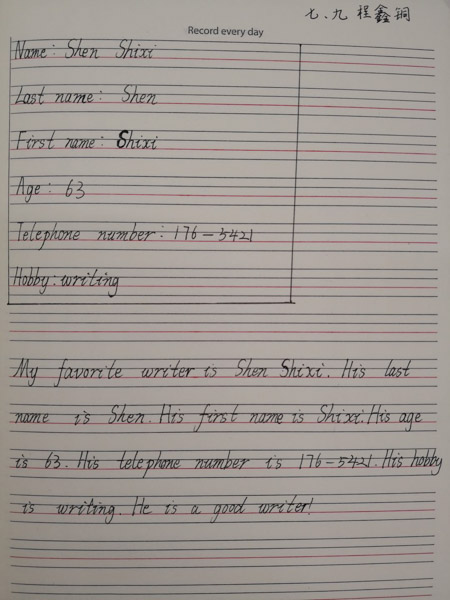 七、九 程鑫铜
Record every day
Name: Shen Shixi
Last name: Shen
First name: Shixi
Age: 63
Telephone number: 176-5421
Hobby: writing
My favorite writer is Shen Shixi. His last
name is Shen. His first name is Shixi. His age
is 63. His telephone number is 176-5421. His hobby
is writing. He is a good writer!